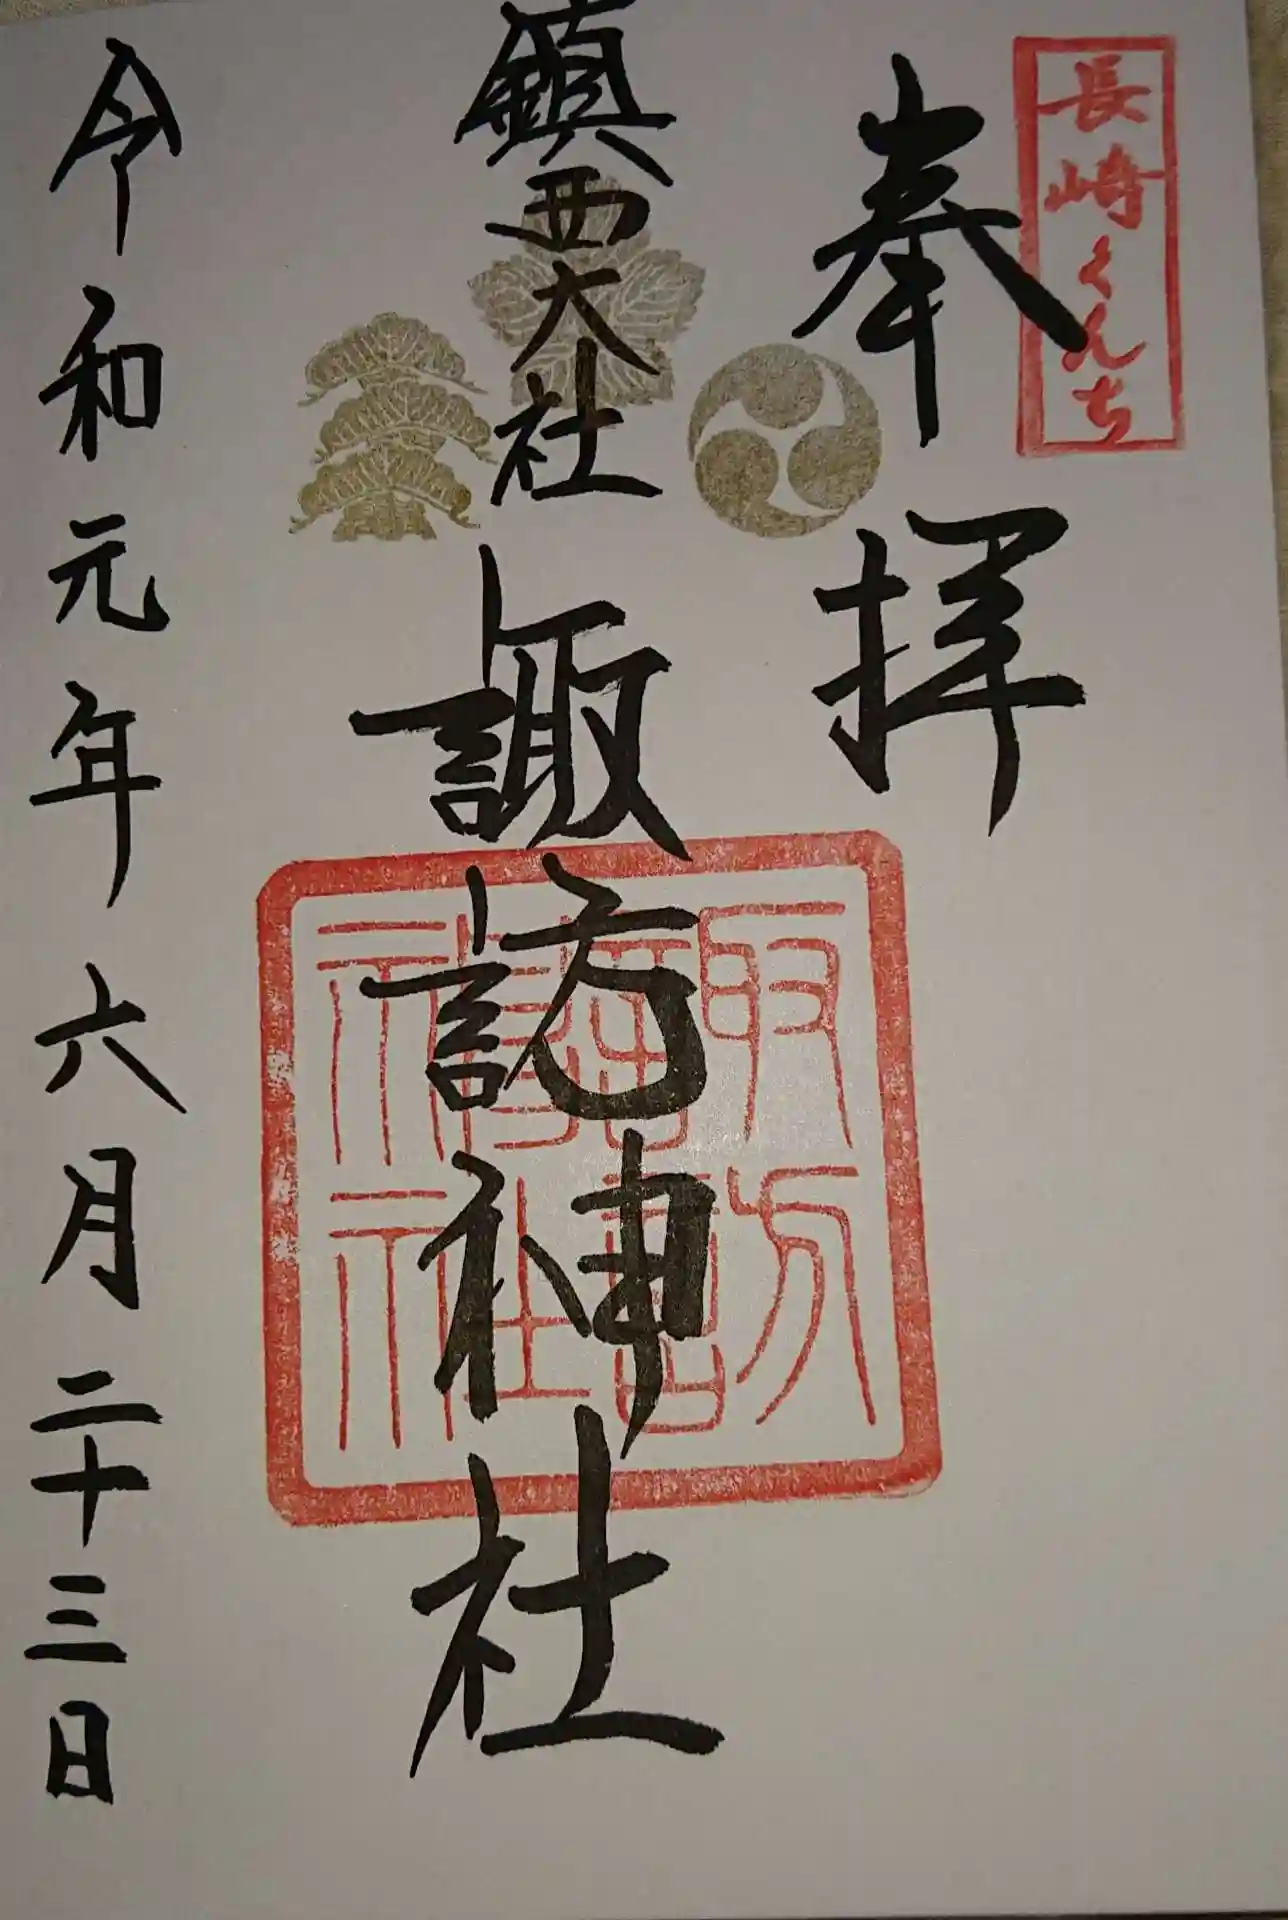 長崎くんち
奉拝
鎮西大社
諏訪神社
諏訪神社
令和元年六月二十三日